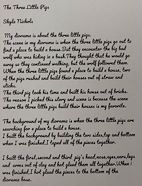 The Three Little Pigs
Sibyle Nichols
My diorama is about the three little pigs.
The scene in my diorama is when the three little pigs go out to
find a place to build a house. But they encounter the big bad
wolf who was hiding in a bush. They thought that he would go
away so they continued walking, but the wolf followed them.
When the three little pigs found a place to build a house, two
of the pigs rushed and build their houses out of straw and
sticks.
The third pig took his time and built his house out of bricks.
The reason I picked this story and scene is because the scene
where the three little pigs build their houses is my favorite.
The background of my diorama is when the three little pigs are
searching for a place to build a house.
I built the background by building the two sides, top and bottom
when I was finished, I taped all of the pieces together.
I built the first, second and third pig's head, nose, eyes, ears, legs
and arms out of clay and hot glued them all together. When I
was finished, I hot glued the pieces to the bottom of the
diorama base.